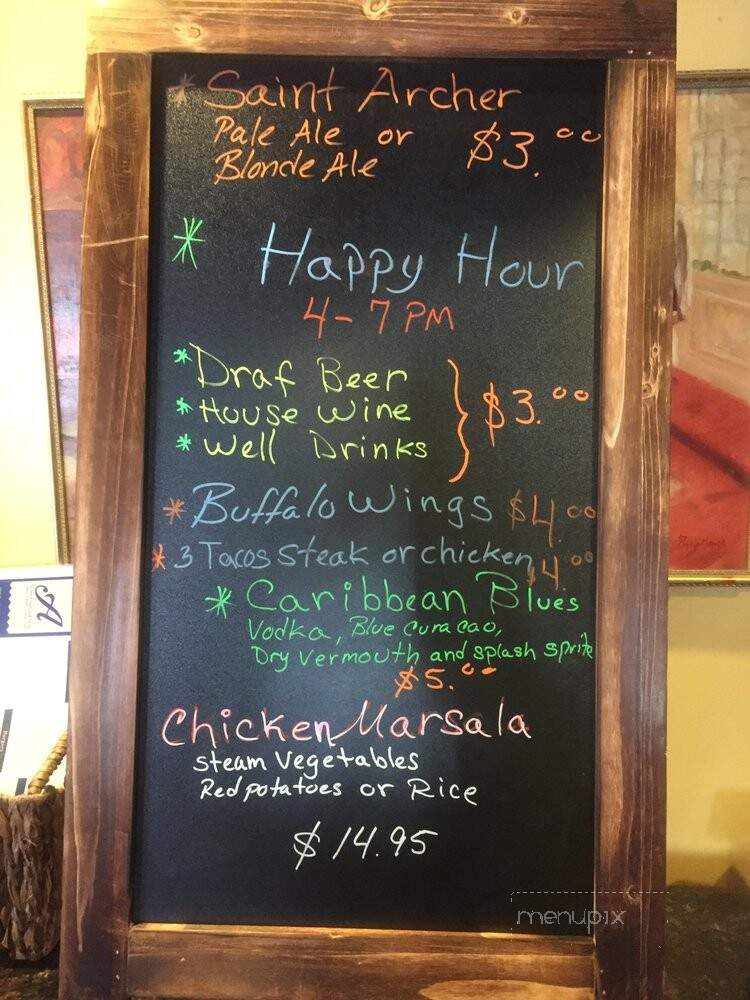 * Saint Archer
Pale Ale or
Blonde Ale
$3.00
* Happy Hour
4-7 PM
* Draf Beer
* House wine
* Well Drinks
$3.00
* Buffalo Wings $4.00
* 3 Tacos steak or chicken $4.00
* Caribbean Blues
Vodka, Blue curacao,
Dry vermouth and splash sprite
$5.00
Chicken Marsala
steam vegetables
Red potatoes or Rice
$14.95
menupix
A